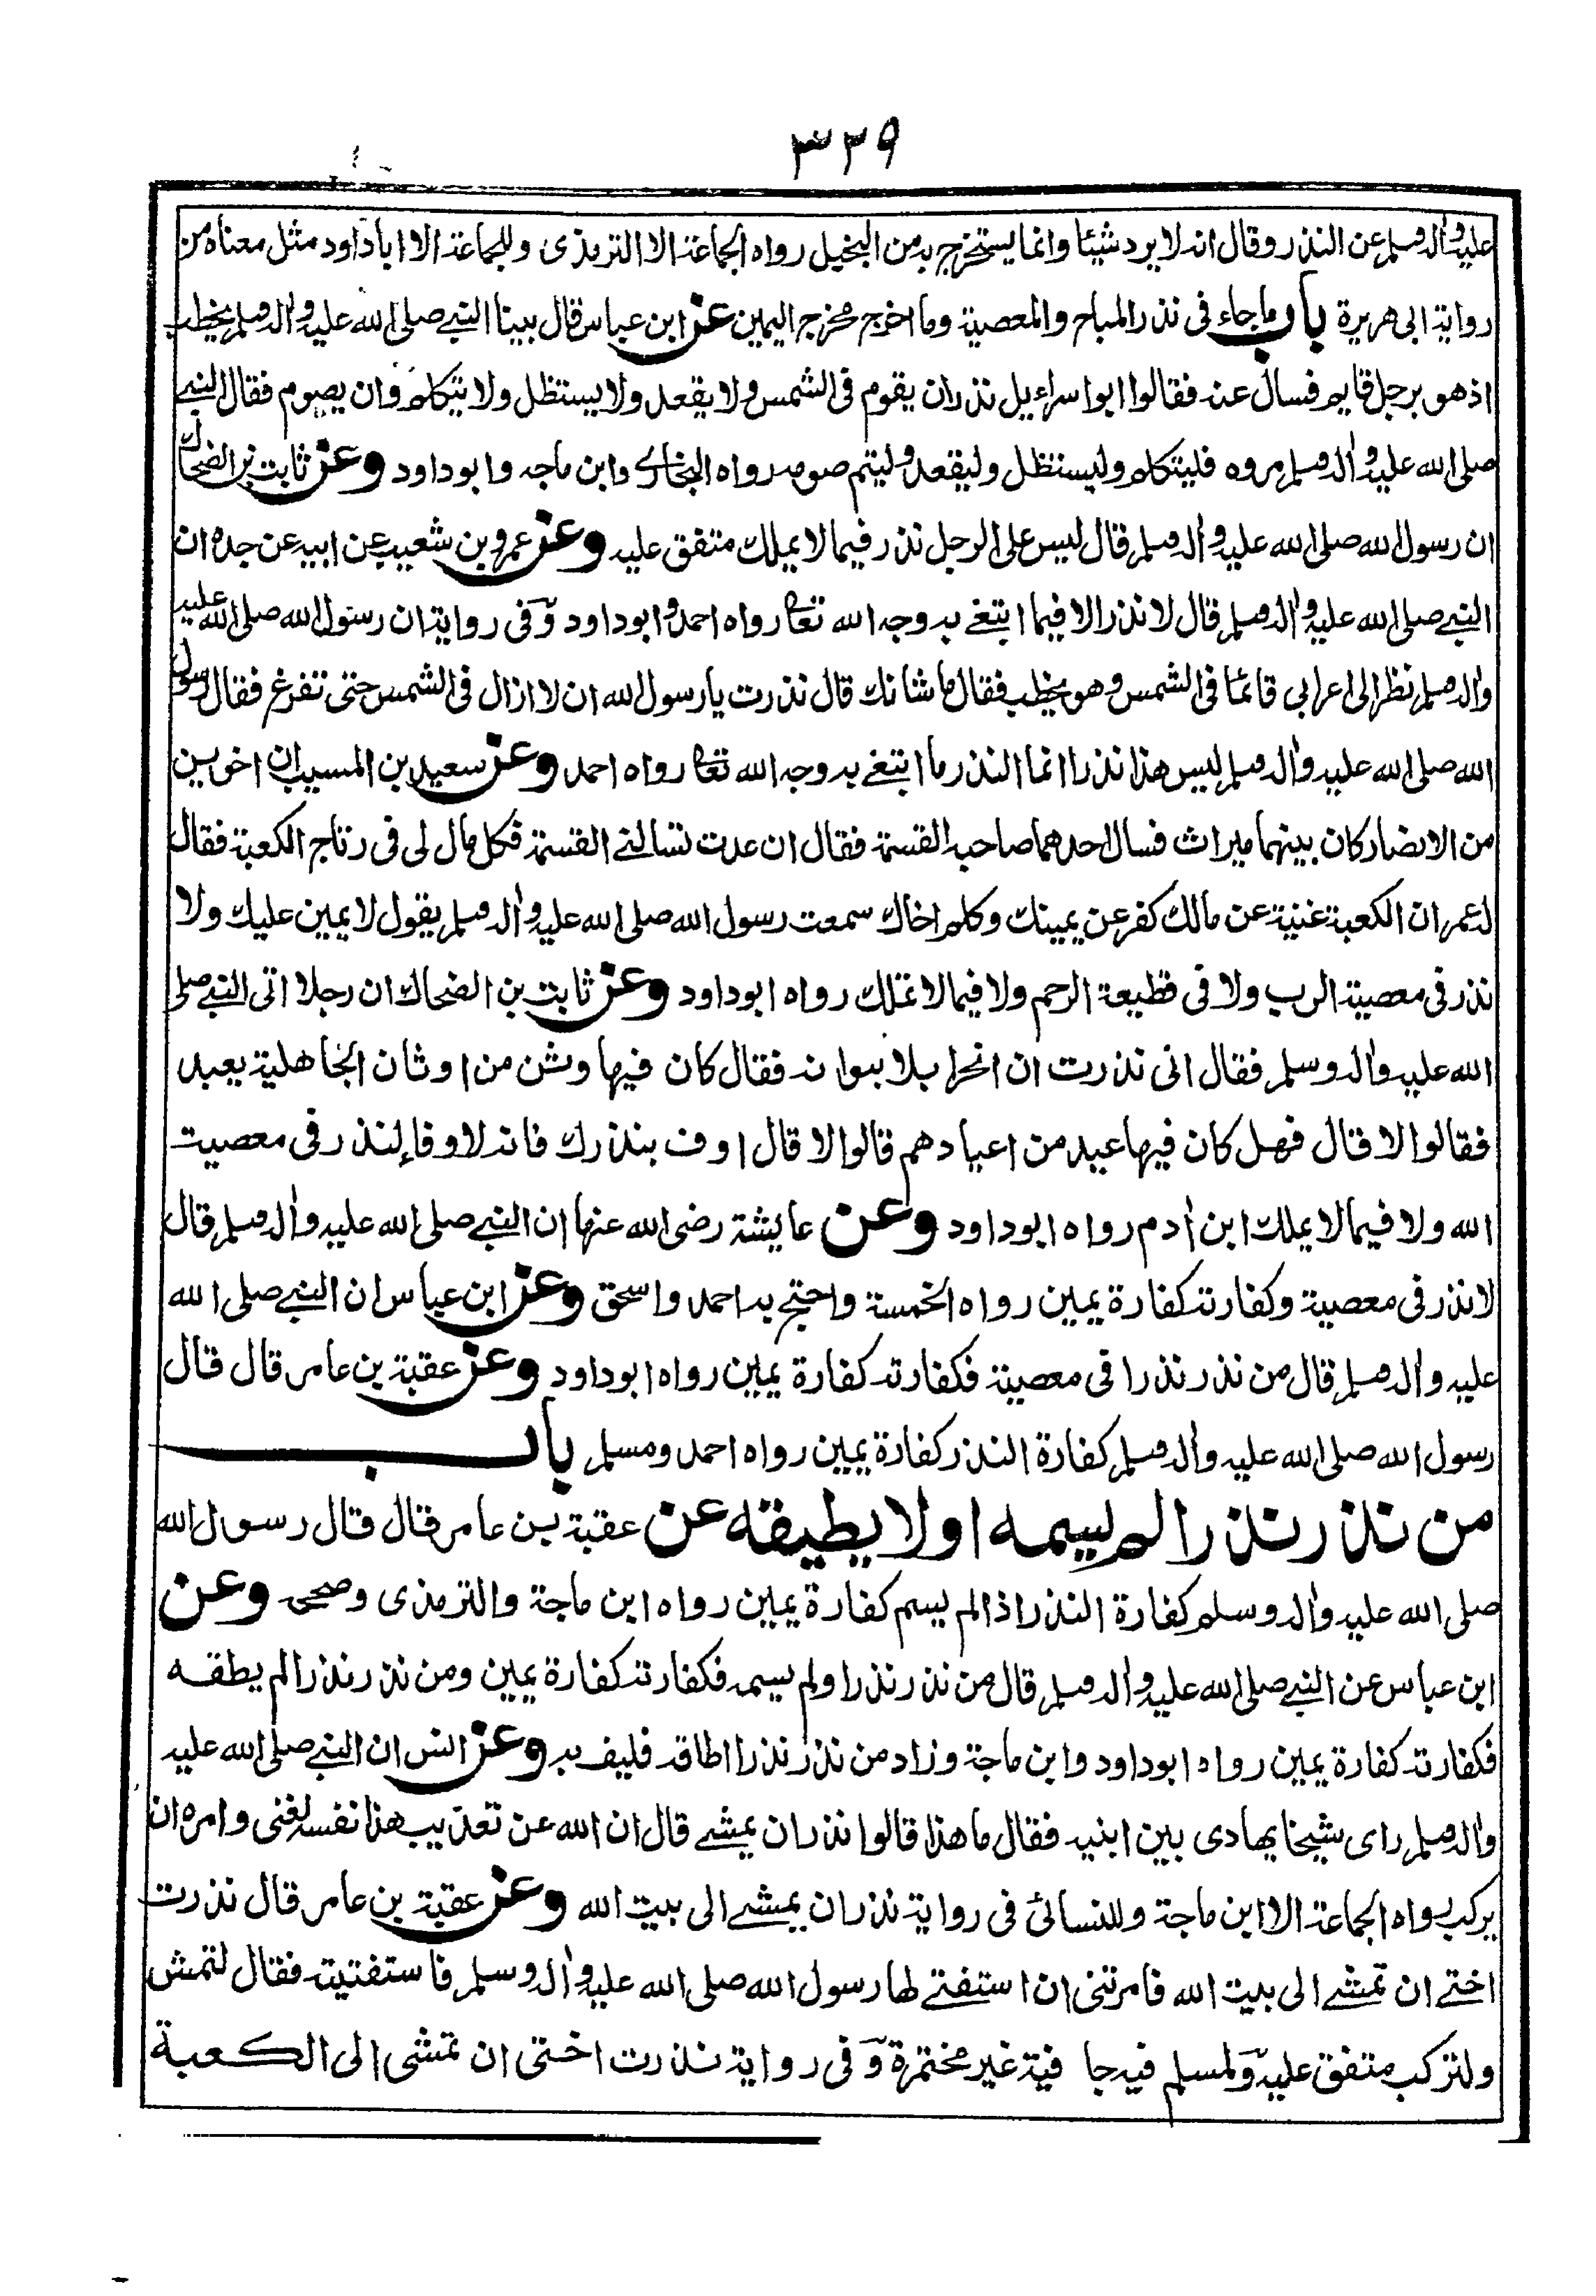 ٣٣٩
عليه واله وسلم عن النذر وقال انه لا يرد شيئا وانما يستخرج به من البخيل رواه الجماعة الا الترمذى وللجماعة الا اباداود مثل معناه من
رواية ابى هريرة باب ما جاء فى نذر المباح والمعصية وما اخرج مخرج اليمين عن ابن عباس قال بينا النبى صلى الله عليه واله وسلم يخطب
اذ هو برجل قايم فسال عنه فقالوا ابو اسراءيل نذر ان يقوم فى الشمس ولا يقعد ولا يستظل ولا يتكلم وان يصوم فقال النبى
صلى الله عليه واله وسلم مروه فليتكلم وليستظل وليقعد وليتم صومه رواه البخارى وابن ماجه وابوداود وعن ثابت بن الضحاك
ان رسول الله صلى الله عليه واله وسلم قال ليس على الرجل نذر فيما لا يملك متفق عليه وعن عمرو بن شعيب عن ابيه عن جده ان
النبى صلى الله عليه واله وسلم قال لا نذر الا فيما ابتغى به وجه الله تعا رواه احمد وابوداود وفى رواية ان رسول الله صلى الله عليه
واله وسلم نظر الى اعرابى قائما فى الشمس وهو يخطب فقال ما شانك قال نذرت يا رسول الله ان لا ازال فى الشمس حتى تفرغ فقال رسول
الله صلى الله عليه واله وسلم ليس هذا نذرا انما النذر ما ابتغى به وجه الله تعا رواه احمد وعن سعيد بن المسيب ان اخوين
من الانصار كان بينهما ميراث فسال احدهما صاحبه القسمة فقال ان عدت تسالنى القسمة فكل مال لى فى رتاج الكعبة فقال
له عمر ان الكعبة غنية عن مالك كفر عن يمينك وكلم اخاك سمعت رسول الله صلى الله عليه واله وسلم يقول لا يمين عليك ولا
نذر فى معصية الرب ولا فى قطيعة الرحم ولا فيما لا تملك رواه ابوداود وعن ثابت بن الضحاك ان رجلا اتى النبى صلى
الله عليه واله وسلم فقال انى نذرت ان انحر ابلا ببوانه فقال كان فيها وثن من اوثان الجاهلية يعبد
فقالوا لا قال فهل كان فيها عيد من اعيادهم قالوا لا قال اوف بنذرك فانه لا وفا لنذر فى معصيت
الله ولا فيما لا يملك ابن ادم رواه ابوداود وعن عايشة رضى الله عنها ان النبى صلى الله عليه واله وسلم قال
لا نذر فى معصية وكفارته كفارة يمين رواه الخمسة واحتج به احمد واسحق وعن ابن عباس ان النبى صلى الله
عليه واله وسلم قال من نذر نذرا فى معصية فكفارته كفارة يمين رواه ابوداود وعن عقبة بن عامر قال قال
رسول الله صلى الله عليه واله وسلم كفارة النذر كفارة يمين رواه احمد ومسلم باب
من نذر نذرا لم يسمه او لا يطيقه عن عقبة بن عامر قال قال رسول الله
صلى الله عليه واله وسلم كفارة النذر اذا لم يسم كفارة يمين رواه ابن ماجة والترمذى وصححه وعن
ابن عباس عن النبى صلى الله عليه واله وسلم قال من نذر نذرا ولم يسمه فكفارته كفارة يمين ومن نذر نذرا لم يطقه
فكفارته كفارة يمين رواه ابوداود وابن ماجة وزاد من نذر نذرا اطاقه فليف به وعن انس ان النبى صلى الله عليه
واله وسلم راى شيخا يهادى بين ابنيه فقال ما هذا قالوا نذر ان يمشى قال ان الله عن تعذيب هذا نفسه لغنى وامره ان
يركب رواه الجماعة الا ابن ماجة وللنسائى فى رواية نذر ان يمشى الى بيت الله وعن عقبة بن عامر قال نذرت
اختى ان تمشى الى بيت الله فامرتنى ان استفتى لها رسول الله صلى الله عليه واله وسلم فاستفتيته فقال لتمش
ولتركب متفق عليه ولمسلم فيه حافية غير مختمرة وفى رواية نذرت اختى ان تمشى الى الكعبة